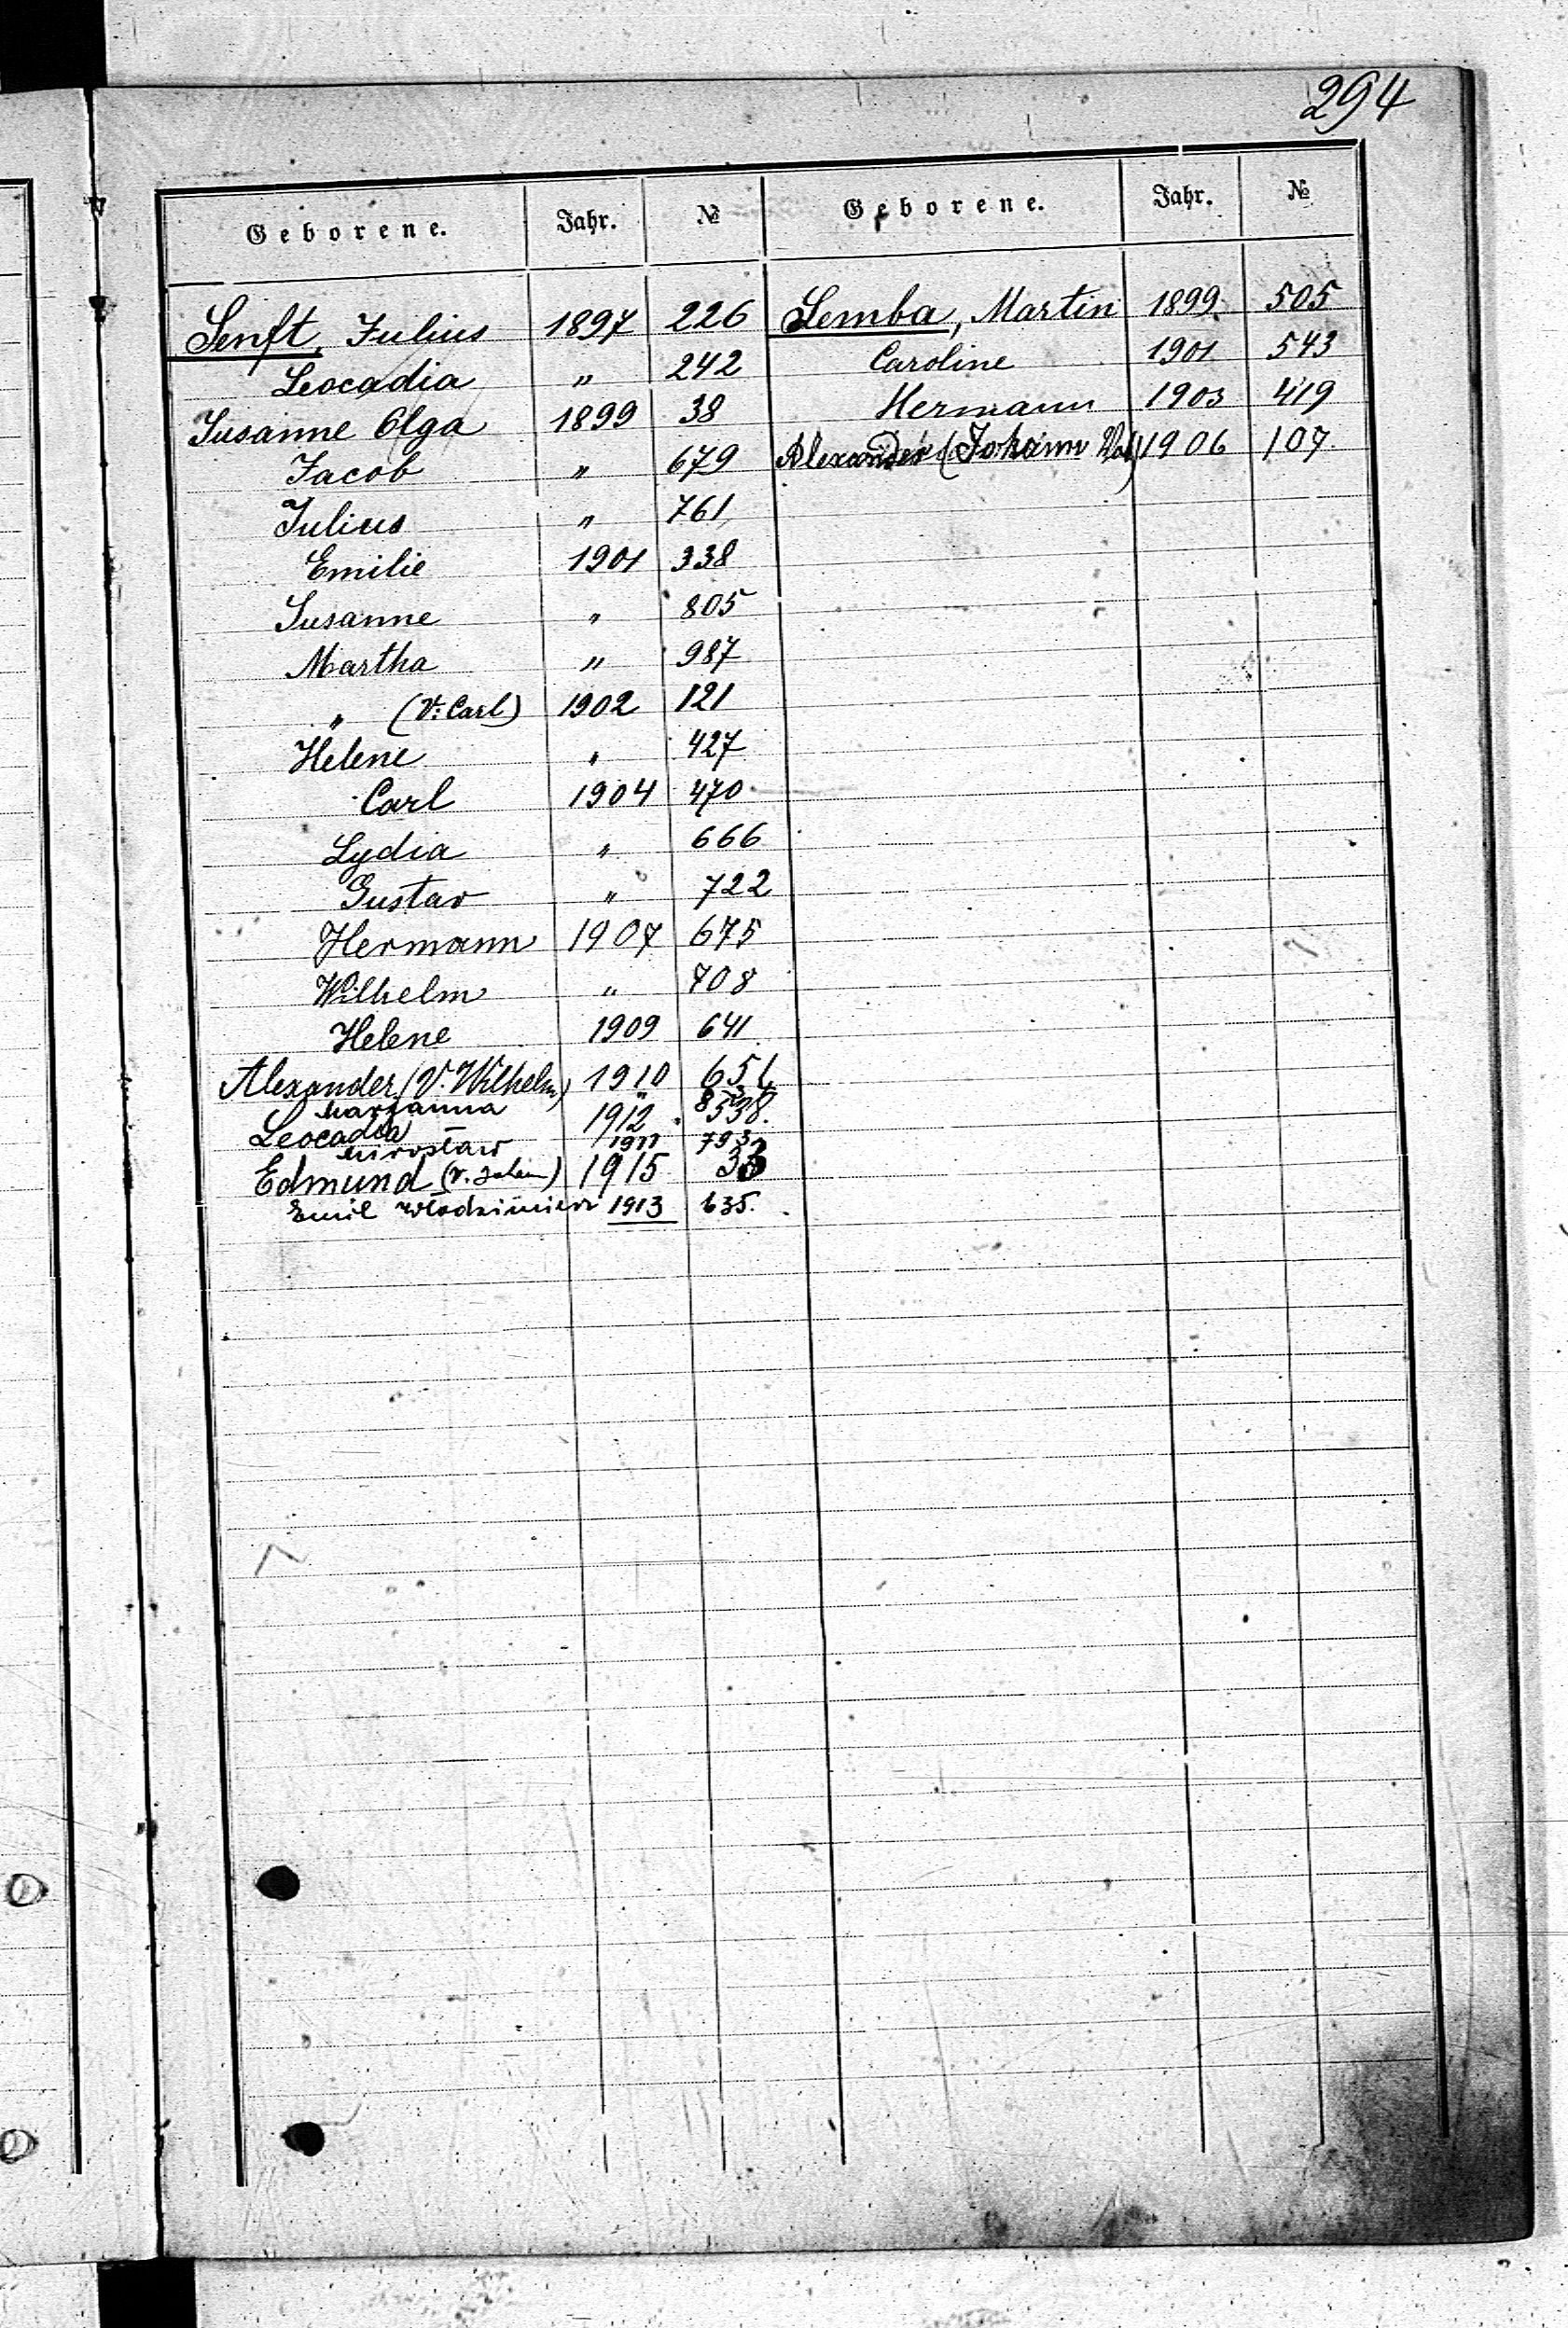 294
Geborene. Jahr. № Geborene. Jahr. №
Senft, Julius 1897 226
Leocadia " 242
Susanne Olga 1899 38
Jacob " 679
Julius " 761
Emilie 1901 338
Susanne " 805
Martha " 987
" (V. Carl) 1902 121
Helene " 427
Carl 1904 470
Lydia " 666
Gustav " 722
Hermann 1907 675
Wilhelm " 708
Helene 1909 641
Alexander (V. Wilhelm) 1910 651
Marianna "
Leocadia 1912 538.
Mirosław 1911 793
Edmund 1915 33
Emil Włodzimierz 1913 635.
Semba, Martin 1899 505
Caroline 1901 543
Hermann 1903 419
Alexander (Johann Vat) 1906 107